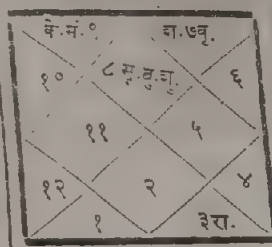 के. मं. ९ श. ७ वृ.
१० ८ सू. बु. शु. ६
११ ५
१२ २ ४
१ ३ रा.